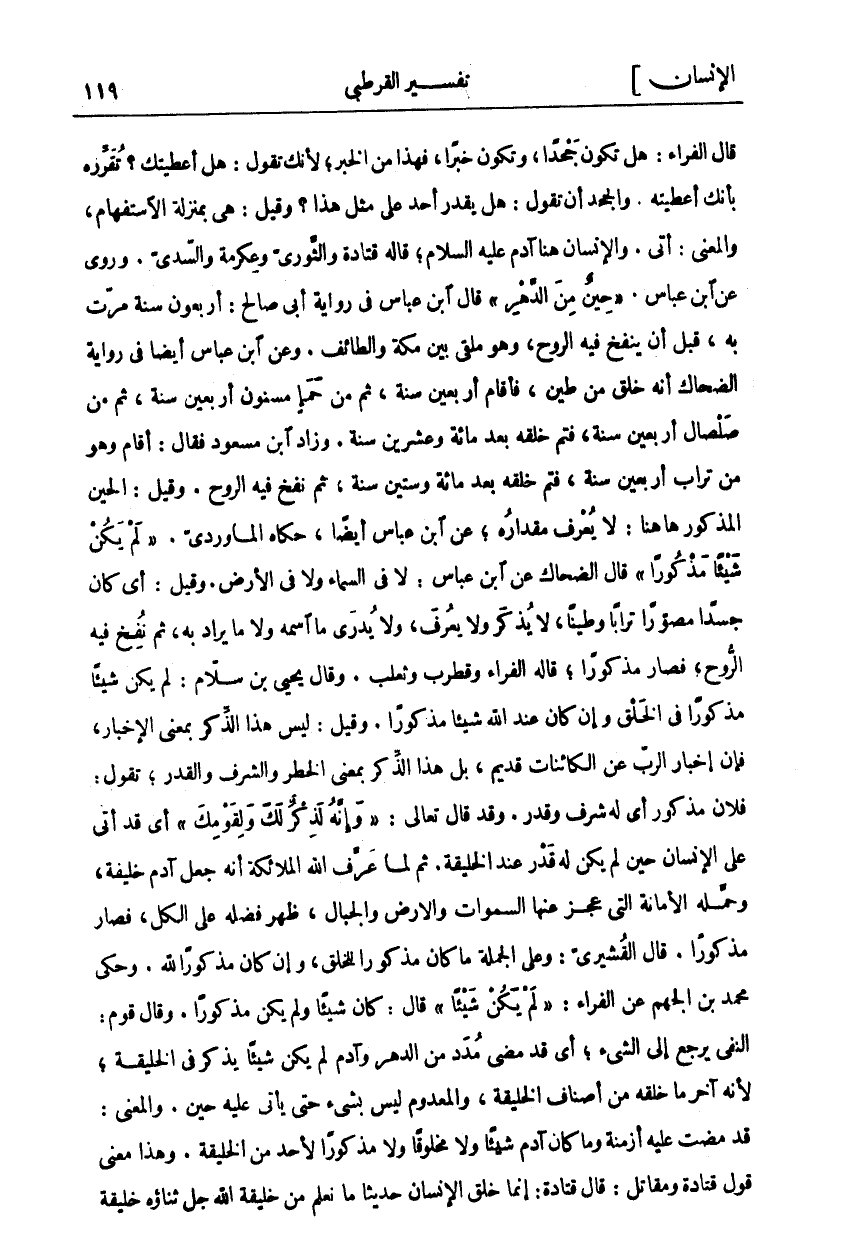 الإنسان ] تفسير القرطبى ١١٩
قال الفراء : هل تكون جَحْدًا ، وتكون خبرًا ، فهذا من الخبر؛ لأنك تقول : هل أعطيتك ؟ تُقَرِّره
بأنك أعطيته . والجحد أن تقول : هل يقدر أحد على مثل هذا ؟ وقيل : هى بمنزلة الاستفهام ،
والمعنى : أتى . والإنسان هنا آدم عليه السلام ؛ قاله قتادة والثَّورى وعِكرمة والسّدى . وروى
عن ٱبن عباس . «حِينٌ مِنَ الدَّهْرِ » قال ٱبن عباس فى رواية أبى صالح : أربعون سنة مرّت
به ، قبل أن ينفخ فيه الروح، وهو ملقى بين مكة والطائف . وعن ٱبن عباس أيضا فى رواية
الضحاك أنه خلق من طين ، فأقام أربعين سنة ، ثم من حَمَإ مسنون أربعين سنة ، ثم من
صَلْصال أربعين سنة، فتم خلقه بعد مائة وعشرين سنة . وزاد ٱبن مسعود فقال : أقام وهو
من تراب أربعين سنة ، فتم خلقه بعد مائة وستين سنة ، ثم نفخ فيه الروح . وقيل : الحين
المذكور هاهنا : لا يُعْرف مقدارُه ؛ عن ٱبن عباس أيضًا ، حكاه الماوردى . « لَمْ يَكُنْ
شَيْئًا مَذْكُورًا » قال الضحاك عن ٱبن عباس : لا فى السماء ولا فى الأرض . وقيل : أى كان
جسدًا مصوّرًا ترابًا وطينًا ، لا يُذكَر ولا يعرَف، ولا يُدرَى ما ٱسمه ولا ما يراد به ، ثم نُفِخ فيه
الرُّوح؛ فصار مذكورًا ؛ قاله الفراء وقطرب وثعلب . وقال يحيى بن سلّام : لم يكن شيئًا
مذكورًا فى الخَلْق وإن كان عند الله شيئا مذكورًا . وقيل : ليس هذا الذِّكر بمعنى الإخبار ،
فإن إخبار الربّ عن الكائنات قديم ، بل هذا الذِّكر بمعنى الخطر والشرف والقدر ؛ تقول :
فلان مذكور أى له شرف وقدر . وقد قال تعالى : « وَإِنَّهُ لَذِكْرٌ لَكَ وَلِقَوْمِكَ » أى قد أتى
على الإنسان حين لم يكن له قَدْر عند الخليقة . ثم لما عَرَّف الله الملائكة أنه جعل آدم خليفة ،
وحمّله الأمانة التى عجز عنها السموات والارض والجبال ، ظهر فضله على الكل ، فصار
مذكورًا . قال القُشيرى : وعلى الجملة ما كان مذكورا للخلق ، وإن كان مذكورًا لله . وحكى
محمد بن الجهم عن الفراء : « لَمْ يَكُنْ شَيْئًا » قال : كان شيئًا ولم يكن مذكورًا . وقال قوم :
النفى يرجع إلى الشىء ؛ أى قد مضى مُدَد من الدهر وآدم لم يكن شيئًا يذكر فى الخليقة ؛
لأنه آخر ما خلقه من أصناف الخليقة ، والمعدوم ليس بشىء حتى يأتى عليه حين . والمعنى :
قد مضت عليه أزمنة وما كان آدم شيئًا ولا مخلوقًا ولا مذكورًا لأحد من الخليقة . وهذا معنى
قول قتادة ومقاتل : قال قتادة : إنما خلق الإنسان حديثا ما نعلم من خليقة الله جل ثناؤه خليقة